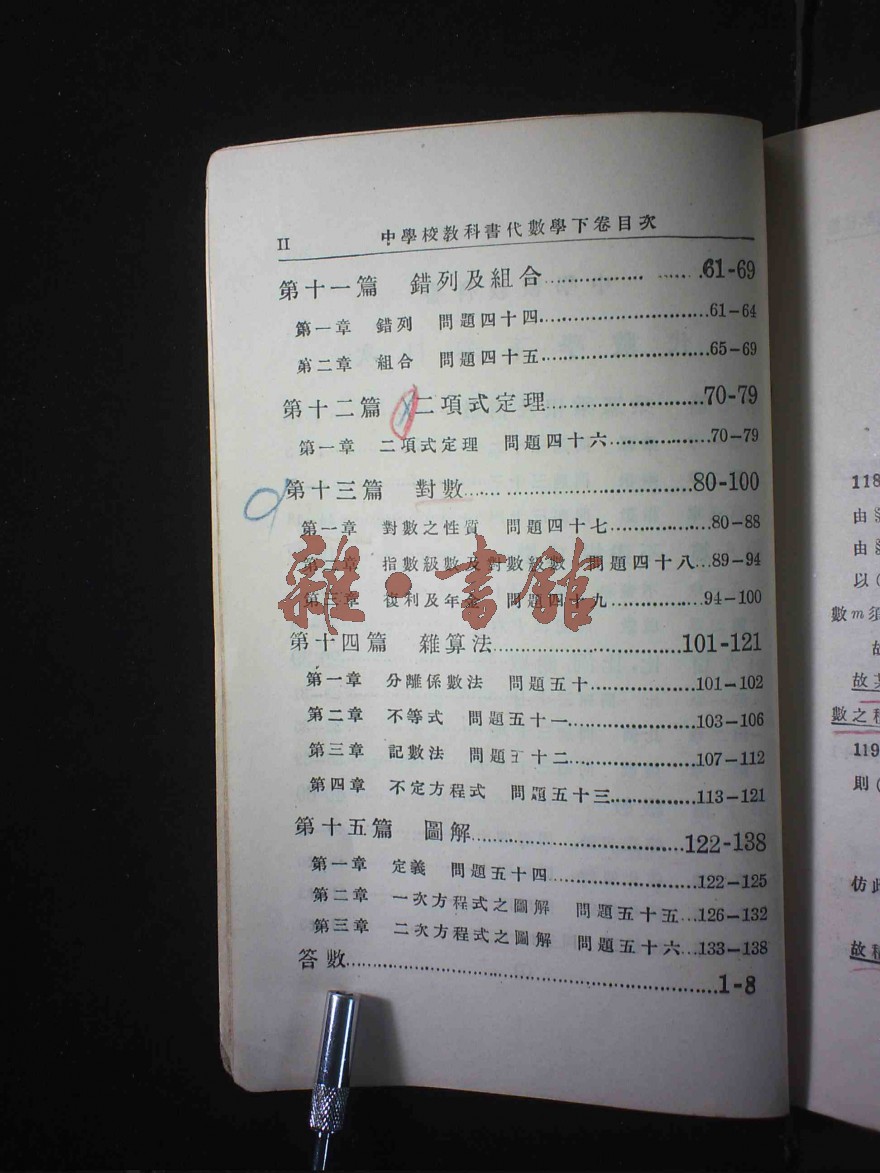 II 中學校教科書代數學下卷目次
第十一篇 錯列及組合……………………61-69
第一章 錯列 問題四十四……………………61-64
第二章 組合 問題四十五……………………65-69
第十二篇 二項式定理……………………70-79
第一章 二項式定理 問題四十六……………70-79
第十三篇 對數……………………80-100
第一章 對數之性質 問題四十七……………80-88
第二章 指數級數及對數級數 問題四十八...89-94
第三章 復利及年金 問題四十九……………94-100
第十四篇 雜算法……………………101-121
第一章 分離係數法 問題五十……………101-102
第二章 不等式 問題五十一……………103-106
第三章 記數法 問題五十二……………107-112
第四章 不定方程式 問題五十三……………113-121
第十五篇 圖解……………………122-138
第一章 定義 問題五十四……………………122-125
第二章 一次方程式之圖解 問題五十五...126-132
第三章 二次方程式之圖解 問題五十六...133-138
答數……………………………………1-8
雜·書館
118
由
由
以(
數m須
故其
數之積
119
則(
仿此
故積